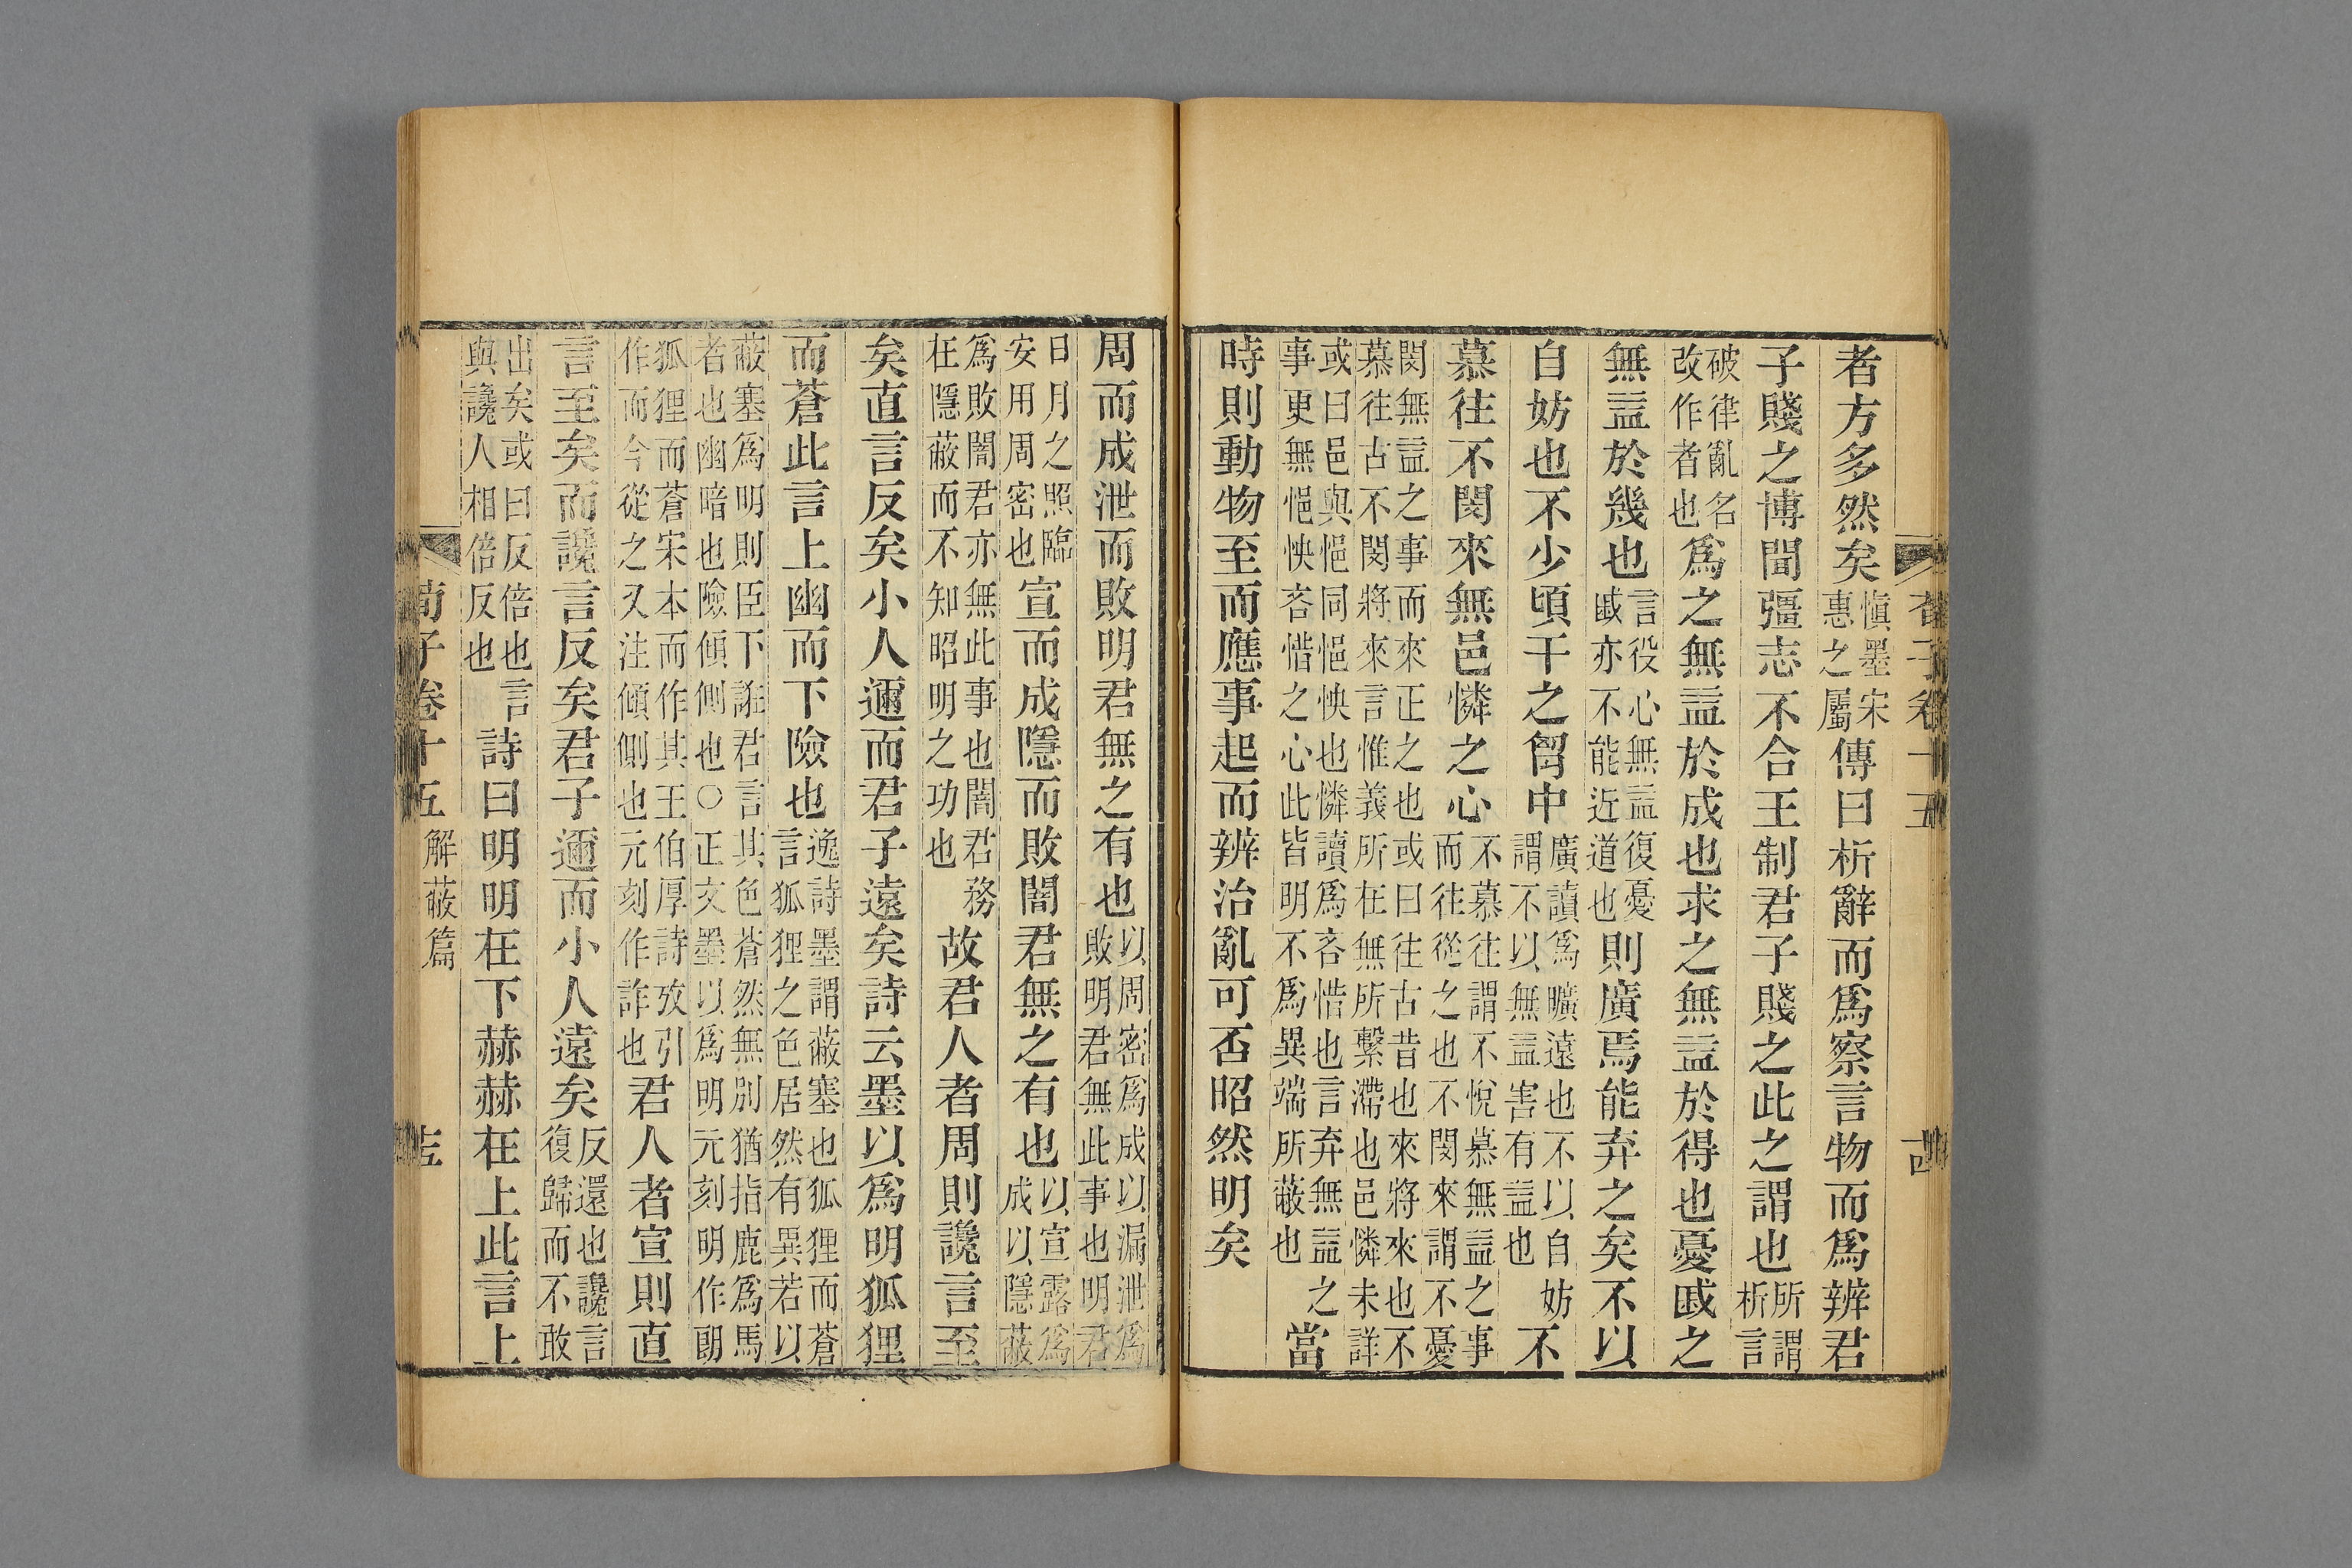 荀子卷十五 十四
者方多然矣慎墨宋惠之屬傳曰析辭而爲察言物而爲辨君
子賤之博聞彊志不合王制君子賤之此之謂也所謂析言
破律亂名改作者也爲之無益於成也求之無益於得也憂戚之
無益於幾也言役心無益復憂戚亦不能近道也則廣焉能弃之矣不以
自妨也不少頃干之胷中廣讀爲曠遠也不以自妨謂不以無益害有益也不
慕往不閔來無邑憐之心不慕往謂不悅慕無益之事而往從之也不閔來謂不憂
閔無益之事而來正之也或曰往古昔也來將來也不慕往古不閔將來言惟義所在無所繫滯也邑憐未詳
或曰邑與悒同悒怏也憐讀爲吝惜也言弃無益之事更無悒怏吝惜之心此皆明不爲異端所蔽也當
時則動物至而應事起而辨治亂可否昭然明矣
周而成泄而敗明君無之有也以周密爲成以漏泄爲敗明君無此事也明君
日月之照臨安用周密也宣而成隱而敗闇君無之有也以宣露爲成以隱蔽
爲敗闇君亦無此事也闇君務在隱蔽而不知昭明之功也故君人者周則讒言至
矣直言反矣小人邇而君子遠矣詩云墨以爲明狐狸
而蒼此言上幽而下險也逸詩墨謂蔽塞也狐狸而蒼言狐狸之色居然有異若以
蔽塞爲明則臣下誑君言其色蒼然無別猶指鹿爲馬者也幽暗也險傾側也○正文墨以爲明元刻明作朙
狐狸而蒼宋本而作其王伯厚詩攷引作而今從之又注傾側也元刻作詐也君人者宣則直
言至矣而讒言反矣君子邇而小人遠矣反還也讒言復歸而不敢
出矣或曰反倍也言與讒人相倍反也詩曰明明在下赫赫在上此言上
荀子卷十五 解蔽篇 十五